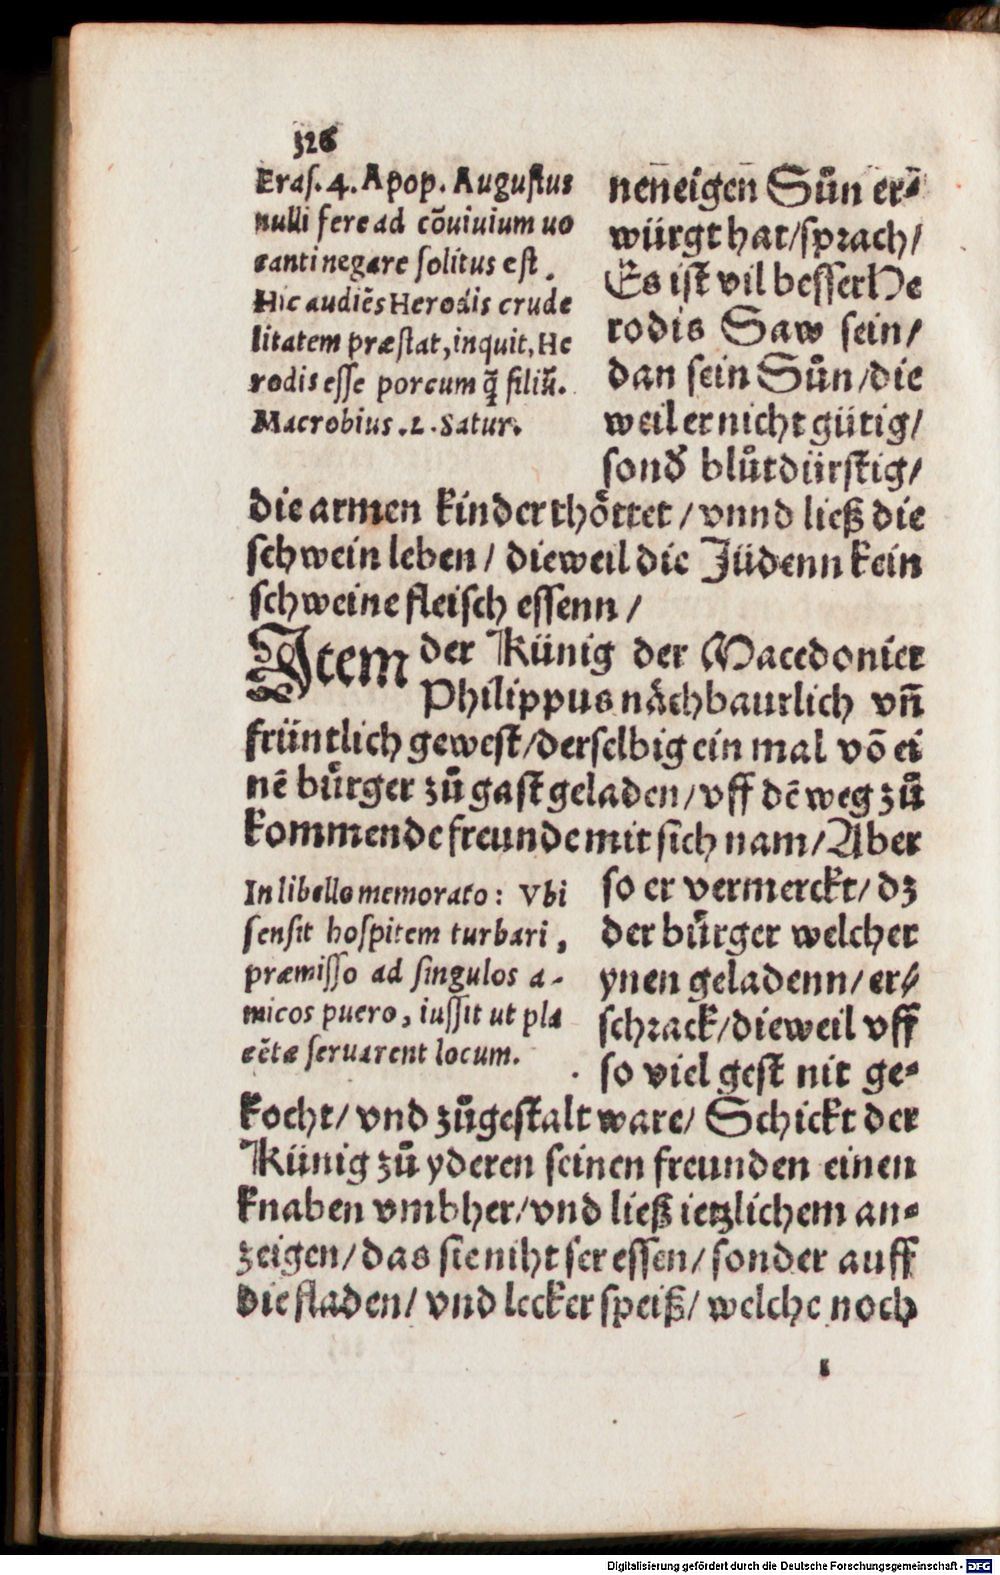 326
Eras. 4. Apop. Augustus
nulli fere ad cõuiuium uo
canti negare solitus est.
Hic audiẽs Herodis crude
litatem præstat, inquit, He
rodis esse porcum q̃ filiũ.
Macrobius. 2. Satur.
nen̄eigen̄ Sůn er-
würgt hat/sprach/
Es ist vil besser He
rodis Saw sein/
dan sein Sůn/die
weil er nicht gütig/
sond̕ blůtdürstig/
die armen kinder thöttet/vnnd ließ die
schwein leben/dieweil die Jüdenn kein
schweine fleisch essenn/
Item der Künig der Macedonier
Philippus nächbaurlich vñ
früntlich gewest/derselbig ein mal võ ei
nẽ bůrger zů gast geladen/vff dẽ weg zů
kommende freunde mit sich nam/Aber
In libello memorato: Vbi
sensit hospitem turbari,
præmisso ad singulos a-
micos puero, iussit ut pla
cẽtæ seruarent locum.
so er vermerckt/dz
der bůrger welcher
ynen geladenn/er-
schrack/dieweil vff
so viel gest nit ge-
kocht/vnd zůgestalt ware/Schickt der
Künig zů yderen seinen freunden einen
knaben vmbher/vnd ließ ietzlichem an-
zeigen/das sie niht ser essen/sonder auff
die fladen/vnd lecker speiß/welche noch
Digitalisierung gefördert durch die Deutsche Forschungsgemeinschaft - DFG